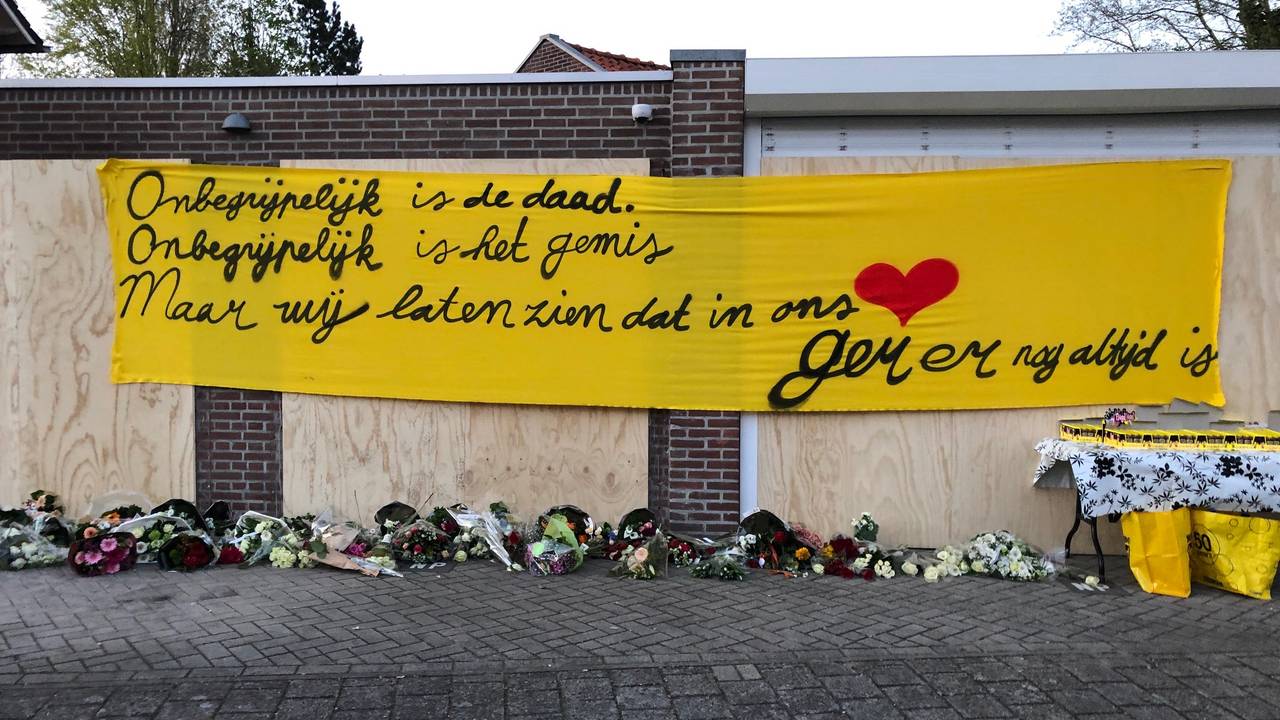 Onbegrijpelijk is de daad.
Onbegrijpelijk is het gemis
Maar wij laten zien dat in ons
Ger er nog altijd is
60